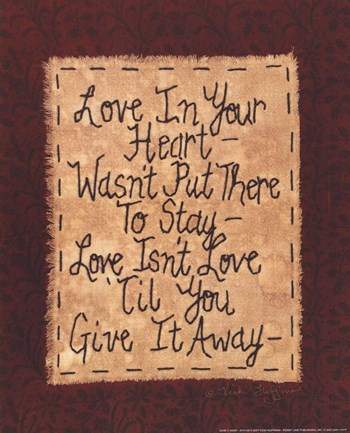 Love In Your
Heart –
Wasn't Put There
To Stay –
Love Isn't Love
'Til You
Give It Away –
©